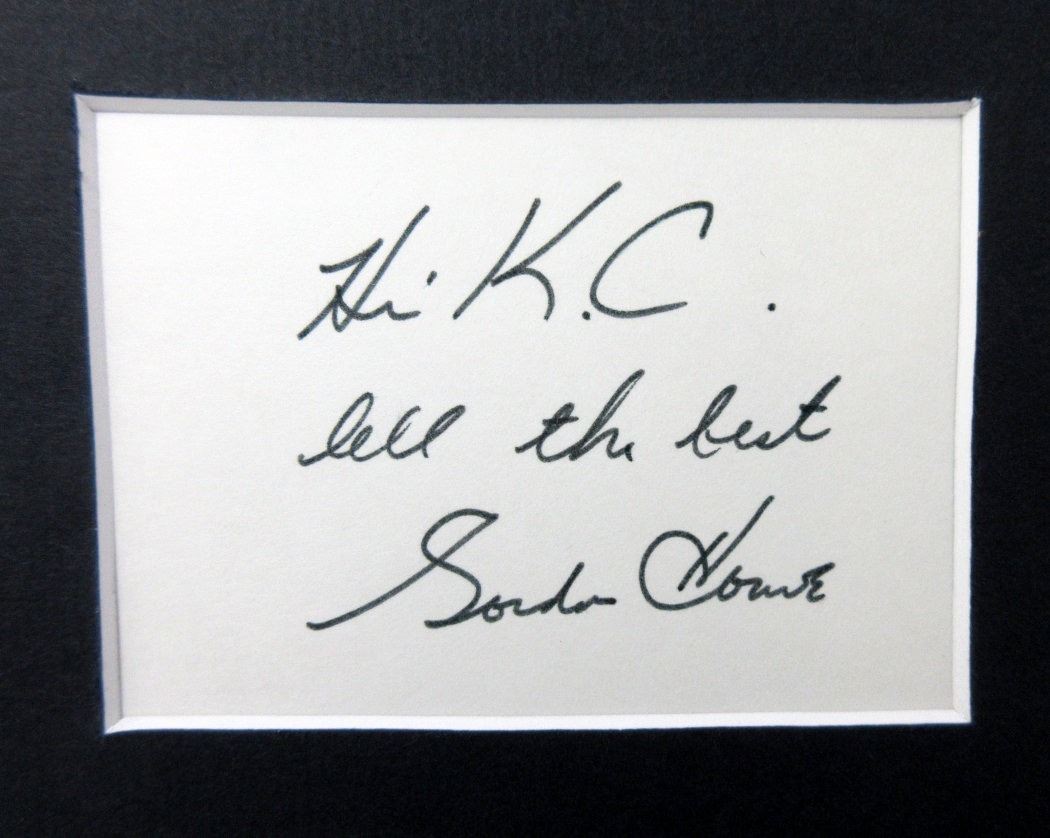 Hi K.C.
all the best
Gordon Howe